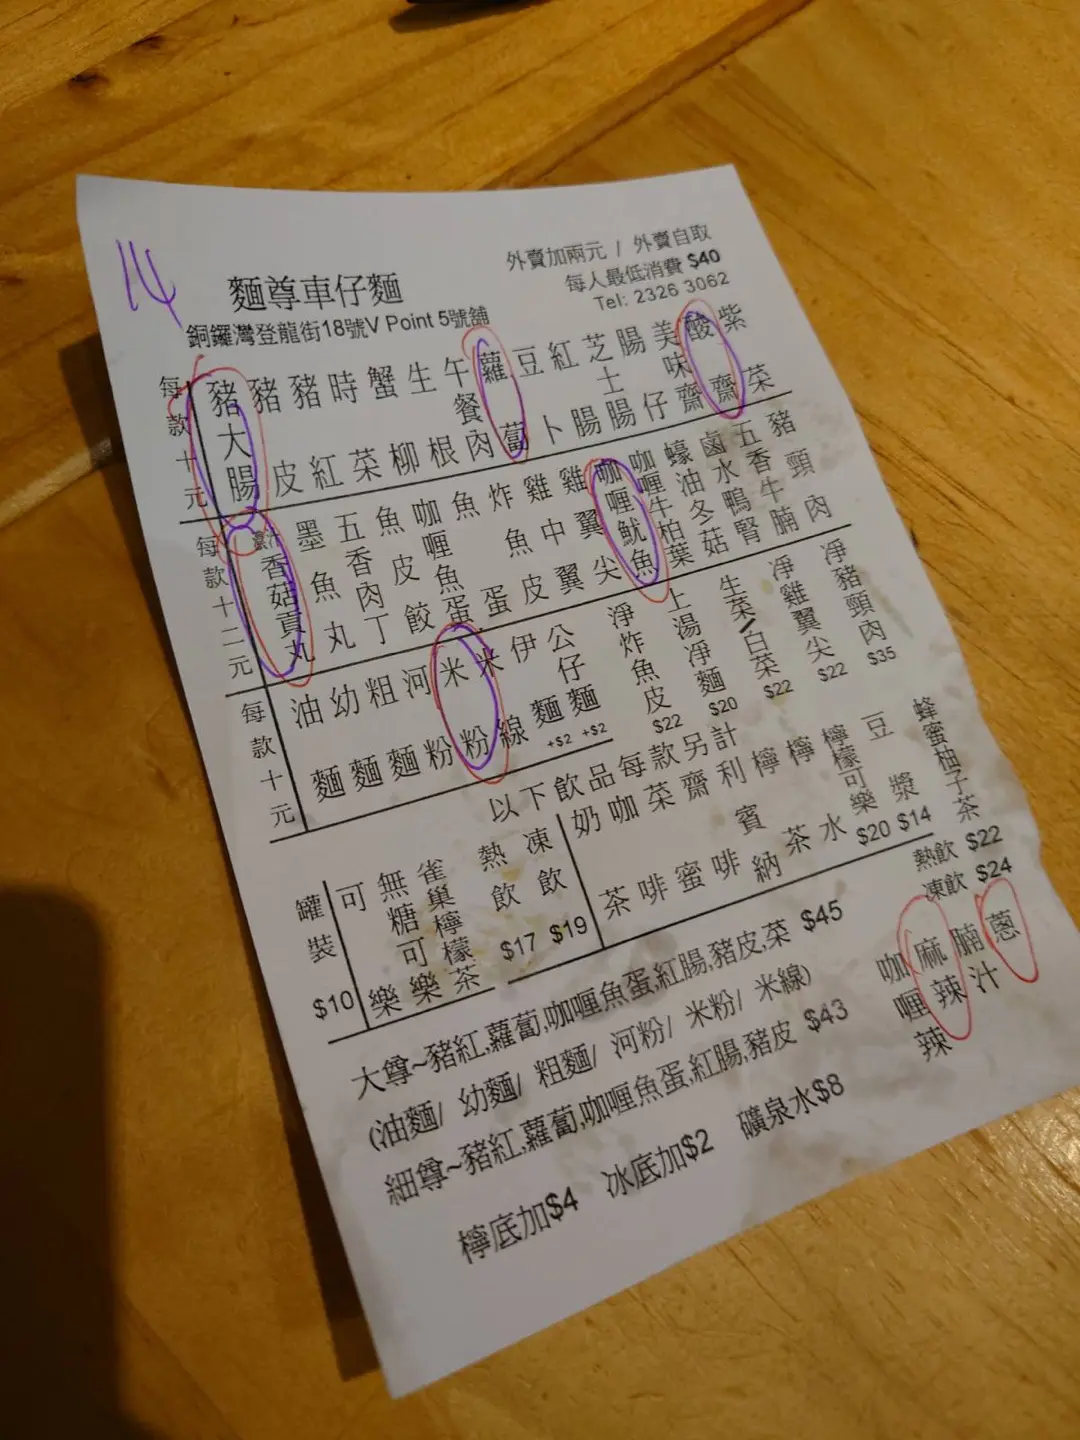 14
麵尊車仔麵
銅鑼灣登龍街18號V Point 5號舖
外賣加兩元 / 外賣自取
每人最低消費 $40
Tel: 2326 3062
每款十元
豬大腸
豬皮
豬紅
時菜
蟹柳
生根
午餐肉
蘿蔔
豆卜
紅腸
芝士腸
腸仔
美味齋
酸齋
紫菜
每款十二元
香菇貢丸
墨魚丸
五香肉丁
魚皮餃
咖喱魚蛋
魚蛋
炸魚皮
雞中翼
雞翼尖
咖喱魷魚
咖喱牛柏葉
蠔油冬菇
鹵水鴨腎
五香牛腩
豬頸肉
每款十元
油麵
幼麵
粗麵
河粉
米粉
米線
伊麵 +$2
公仔麵 +$2
淨炸魚皮 $22
上湯凈麵 $20
生菜/白菜 $22
凈雞翼尖 $22
凈豬頸肉 $35
以下飲品每款另計
罐裝 $10
可樂
無糖可樂
雀巢檸檬茶
熱飲 $17
凍飲 $19
奶茶
咖啡
菜蜜
齋啡
利賓納
檸茶
檸水
檸檬可樂 $20
豆漿 $14
蜂蜜柚子茶
熱飲 $22
凍飲 $24
大尊~豬紅,蘿蔔,咖喱魚蛋,紅腸,豬皮,菜 $45
(油麵/ 幼麵/ 粗麵/ 河粉/ 米粉/ 米線)
細尊~豬紅,蘿蔔,咖喱魚蛋,紅腸,豬皮 $43
咖喱辣
麻辣
腩汁
蔥
檸底加$4 冰底加$2 礦泉水$8